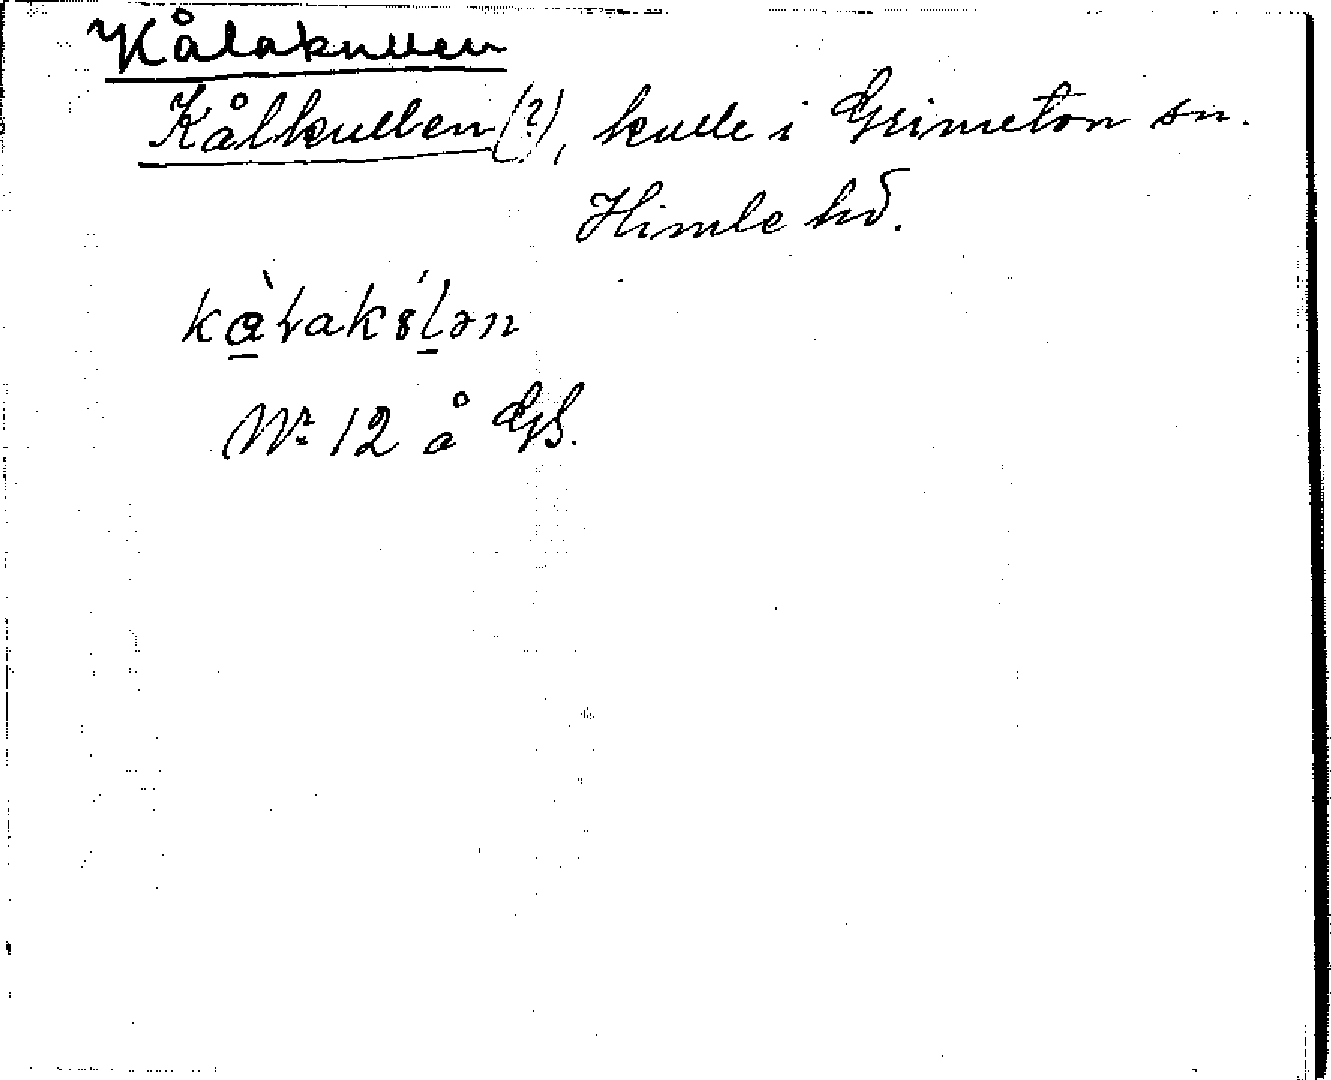 Kålakullen
Kålkullen (?), kulle i Grimeton sn.
Himle hd.
Nr 12 å